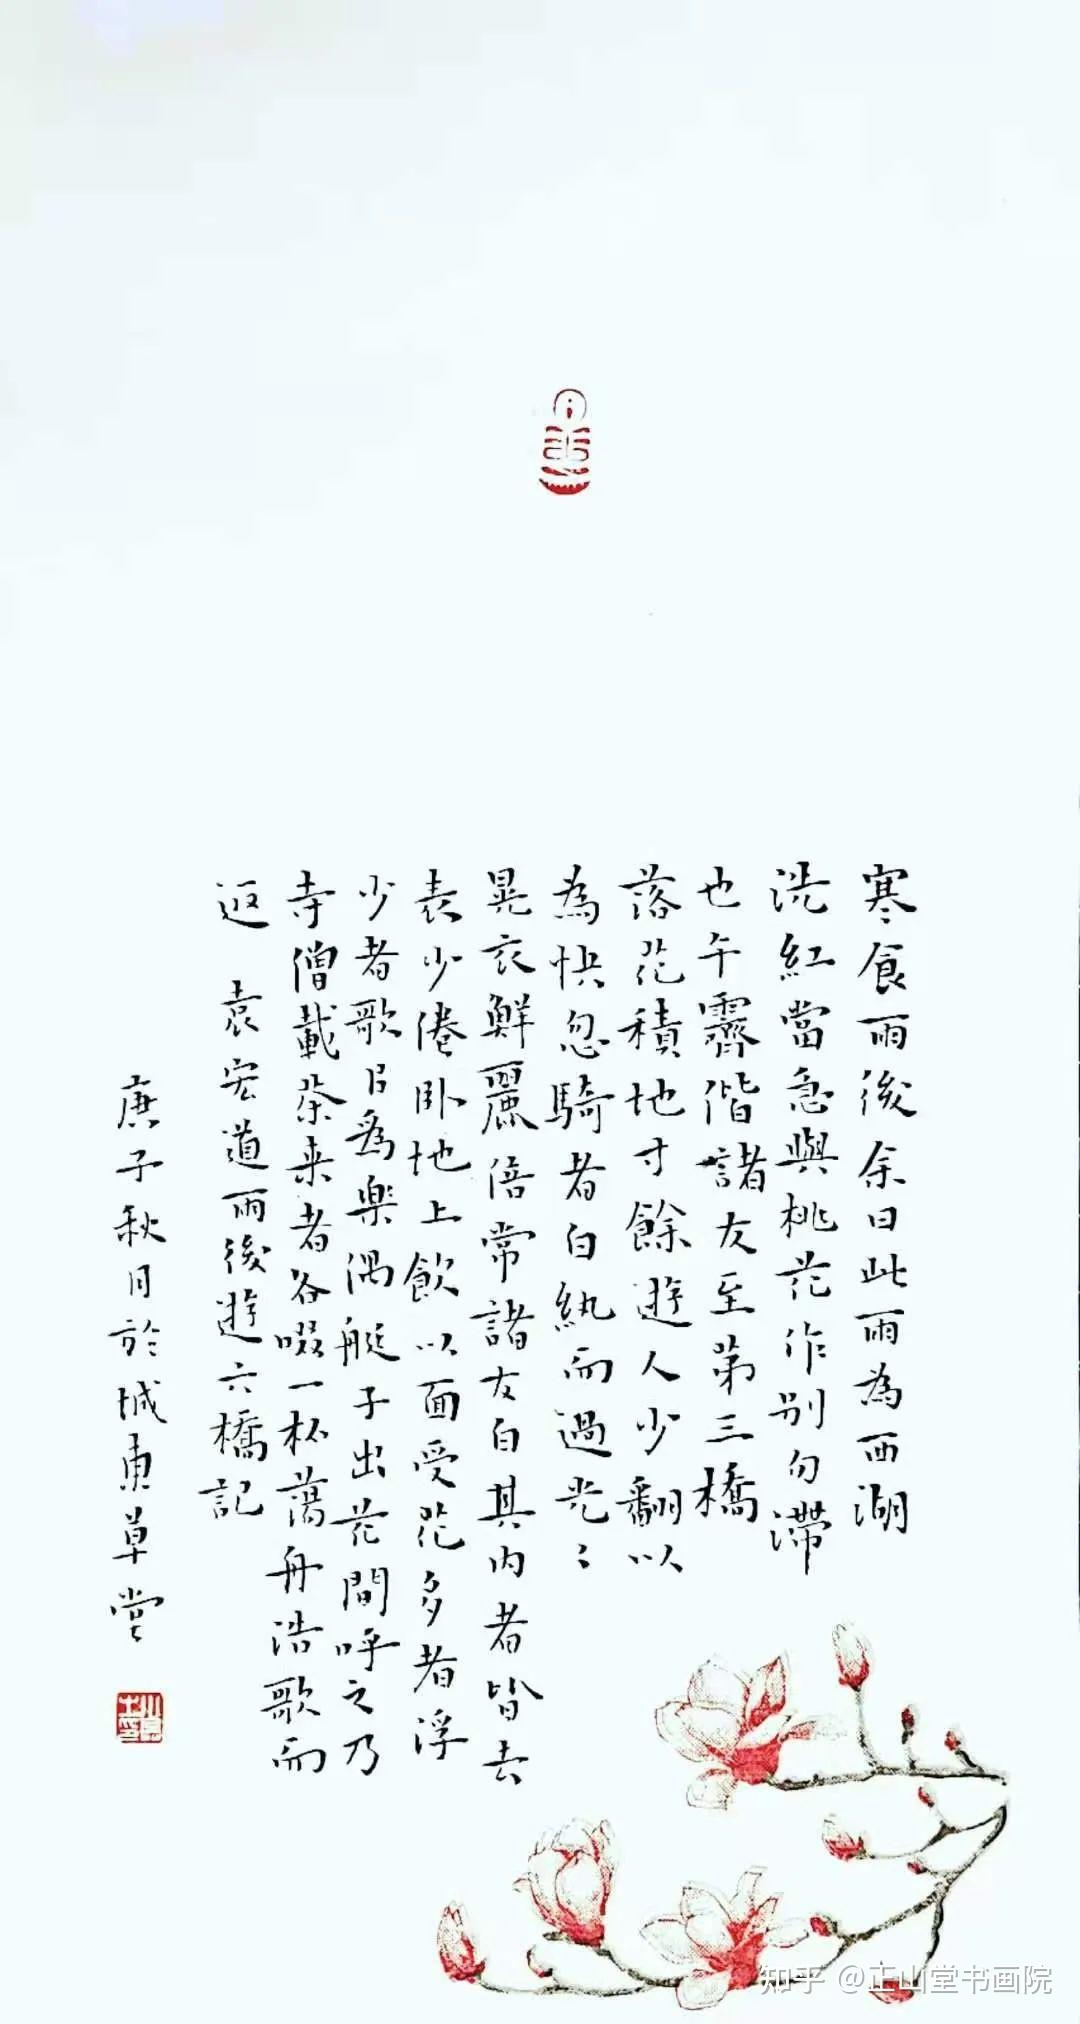 寒食雨後余曰此雨為西湖
洗紅當急與桃花作別勿滯
也午霽偕諸友至第三橋
落花積地寸餘遊人少翻以
為快忽騎者白紈而過光〻
晃衣鮮麗倍常諸友白其內者皆去
表少倦卧地上飲以面受花多者浮
少者歌以為樂偶艇子出花間呼之乃
寺僧載茶来者各啜一杯蕩舟浩歌而
返 袁宏道雨後遊六橋記
庚子秋月於城東草堂
知乎 @正山堂书画院